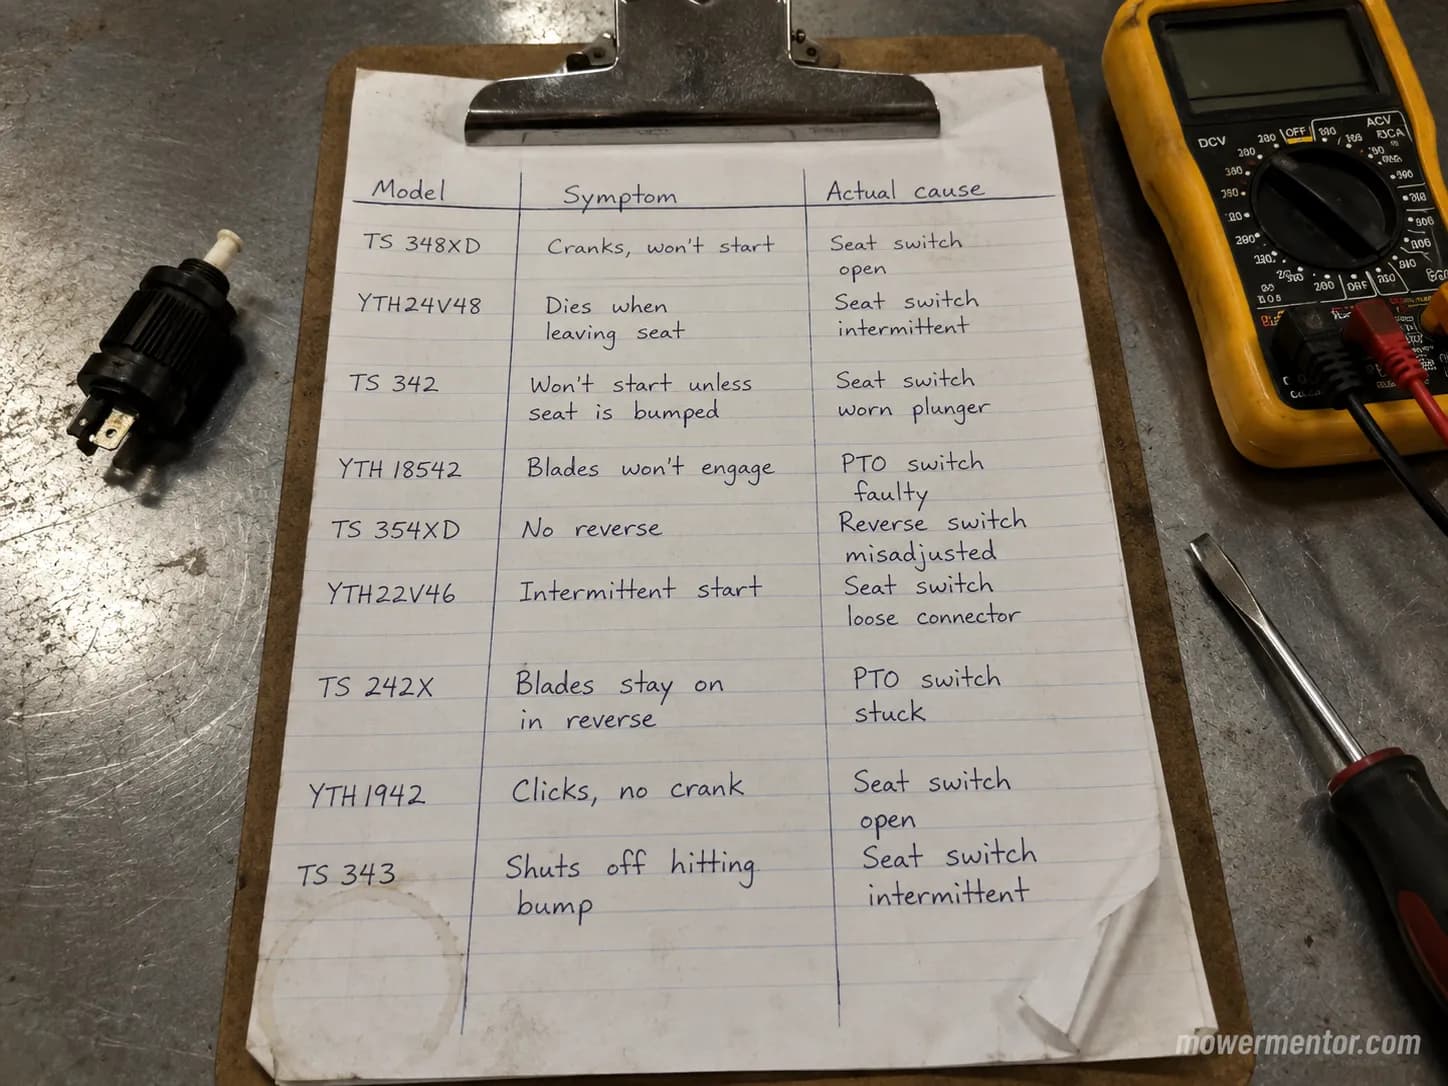 Model Symptom Actual cause
TS 348XD Cranks, won't start Seat switch
open
YTH24V48 Dies when Seat switch
leaving seat intermittent
TS 342 Won't start unless Seat switch
seat is bumped worn plunger
YTH 18542 Blades won't engage PTO switch
faulty
TS 354XD No reverse Reverse switch
misadjusted
YTH22V46 Intermittent start Seat switch
loose connector
TS 242X Blades stay on PTO switch
in reverse stuck
YTH1942 Clicks, no crank Seat switch
open
TS 343 Shuts off hitting Seat switch
bump intermittent
DCV OFF ACV
mowermentor.com